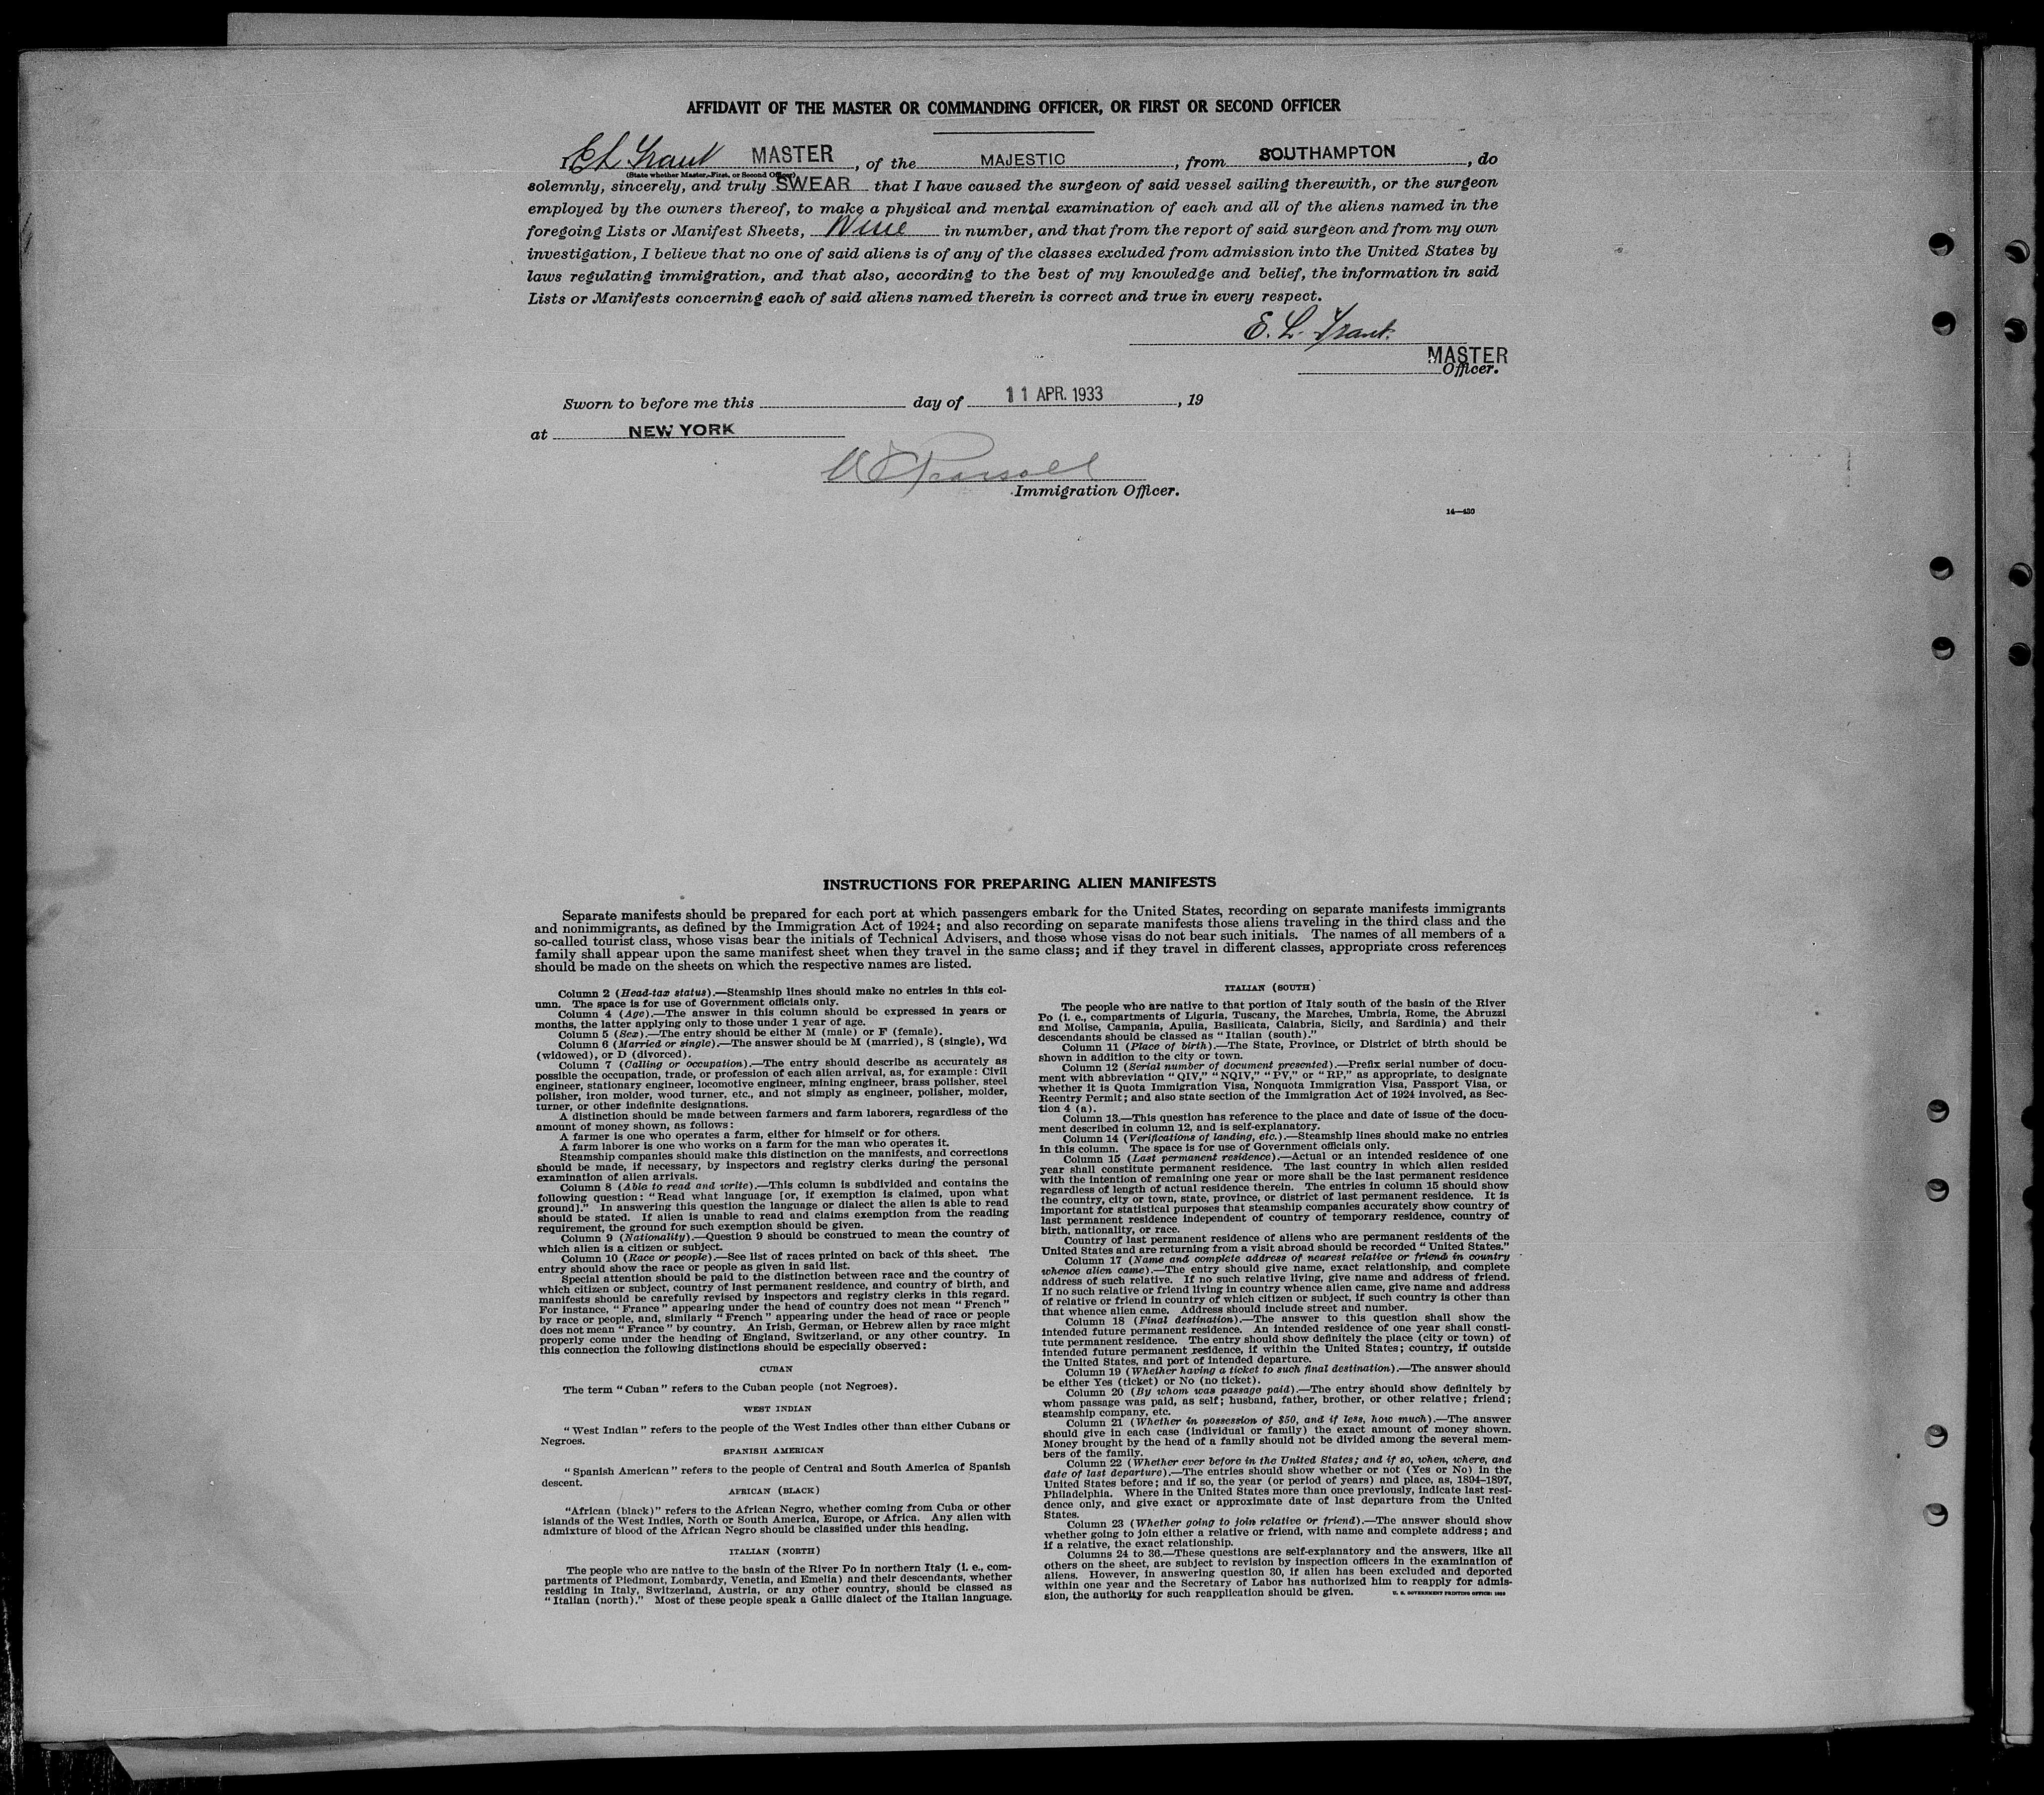 AFFIDAVIT OF THE MASTER OR COMMANDING OFFICER, OR FIRST OR SECOND OFFICER
I, E L Grant MASTER, of the MAJESTIC, from SOUTHAMPTON, do
(State whether Master, First, or Second Officer)
solemnly, sincerely, and truly SWEAR that I have caused the surgeon of said vessel sailing therewith, or the surgeon
employed by the owners thereof, to make a physical and mental examination of each and all of the aliens named in the
foregoing Lists or Manifest Sheets, Nine in number, and that from the report of said surgeon and from my own
investigation, I believe that no one of said aliens is of any of the classes excluded from admission into the United States by
laws regulating immigration, and that also, according to the best of my knowledge and belief, the information in said
Lists or Manifests concerning each of said aliens named therein is correct and true in every respect.
E. L. Grant.
MASTER
Officer.
Sworn to before me this day of 11 APR. 1933, 19
at NEW YORK
Immigration Officer.
14—430
INSTRUCTIONS FOR PREPARING ALIEN MANIFESTS
Separate manifests should be prepared for each port at which passengers embark for the United States, recording on separate manifests immigrants
and nonimmigrants, as defined by the Immigration Act of 1924; and also recording on separate manifests those aliens traveling in the third class and the
so-called tourist class, whose visas bear the initials of Technical Advisers, and those whose visas do not bear such initials. The names of all members of a
family shall appear upon the same manifest sheet when they travel in the same class; and if they travel in different classes, appropriate cross references
should be made on the sheets on which the respective names are listed.
Column 2 (Head-tax status).—Steamship lines should make no entries in this col-
umn. The space is for use of Government officials only.
Column 4 (Age).—The answer in this column should be expressed in years or
months, the latter applying only to those under 1 year of age.
Column 5 (Sex).—The entry should be either M (male) or F (female).
Column 6 (Married or single).—The answer should be M (married), S (single), Wd
(widowed), or D (divorced).
Column 7 (Calling or occupation).—The entry should describe as accurately as
possible the occupation, trade, or profession of each alien arrival, as, for example: Civil
engineer, stationary engineer, locomotive engineer, mining engineer, brass polisher, steel
polisher, iron molder, wood turner, etc., and not simply as engineer, polisher, molder,
turner, or other indefinite designations.
A distinction should be made between farmers and farm laborers, regardless of the
amount of money shown, as follows:
A farmer is one who operates a farm, either for himself or for others.
A farm laborer is one who works on a farm for the man who operates it.
Steamship companies should make this distinction on the manifests, and corrections
should be made, if necessary, by inspectors and registry clerks during the personal
examination of alien arrivals.
Column 8 (Able to read and write).—This column is subdivided and contains the
following question: "Read what language [or, if exemption is claimed, upon what
ground]." In answering this question the language or dialect the alien is able to read
should be stated. If alien is unable to read and claims exemption from the reading
requirement, the ground for such exemption should be given.
Column 9 (Nationality).—Question 9 should be construed to mean the country of
which alien is a citizen or subject.
Column 10 (Race or people).—See list of races printed on back of this sheet. The
entry should show the race or people as given in said list.
Special attention should be paid to the distinction between race and the country of
which citizen or subject, country of last permanent residence, and country of birth, and
manifests should be carefully revised by inspectors and registry clerks in this regard.
For instance, "France" appearing under the head of country does not mean "French"
by race or people, and, similarly "French" appearing under the head of race or people
does not mean "France" by country. An Irish, German, or Hebrew alien by race might
properly come under the heading of England, Switzerland, or any other country. In
this connection the following distinctions should be especially observed:
CUBAN
The term "Cuban" refers to the Cuban people (not Negroes).
WEST INDIAN
"West Indian" refers to the people of the West Indies other than either Cubans or
Negroes.
SPANISH AMERICAN
"Spanish American" refers to the people of Central and South America of Spanish
descent.
AFRICAN (BLACK)
"African (black)" refers to the African Negro, whether coming from Cuba or other
islands of the West Indies, North or South America, Europe, or Africa. Any alien with
admixture of blood of the African Negro should be classified under this heading.
ITALIAN (NORTH)
The people who are native to the basin of the River Po in northern Italy (i. e., com-
partments of Piedmont, Lombardy, Venetia, and Emelia) and their descendants, whether
residing in Italy, Switzerland, Austria, or any other country, should be classed as
"Italian (north)." Most of these people speak a Gallic dialect of the Italian language.
ITALIAN (SOUTH)
The people who are native to that portion of Italy south of the basin of the River
Po (i. e., compartments of Liguria, Tuscany, the Marches, Umbria, Rome, the Abruzzi
and Molise, Campania, Apulia, Basilicata, Calabria, Sicily, and Sardinia) and their
descendants should be classed as "Italian (south)."
Column 11 (Place of birth).—The State, Province, or District of birth should be
shown in addition to the city or town.
Column 12 (Serial number of document presented).—Prefix serial number of docu-
ment with abbreviation "QIV," "NQIV," "PV," or "RP," as appropriate, to designate
whether it is Quota Immigration Visa, Nonquota Immigration Visa, Passport Visa, or
Reentry Permit; and also state section of the Immigration Act of 1924 involved, as Sec-
tion 4 (a).
Column 13.—This question has reference to the place and date of issue of the docu-
ment described in column 12, and is self-explanatory.
Column 14 (Verifications of landing, etc.).—Steamship lines should make no entries
in this column. The space is for use of Government officials only.
Column 15 (Last permanent residence).—Actual or an intended residence of one
year shall constitute permanent residence. The last country in which alien resided
with the intention of remaining one year or more shall be the last permanent residence
regardless of length of actual residence therein. The entries in column 15 should show
the country, city or town, state, province, or district of last permanent residence. It is
important for statistical purposes that steamship companies accurately show country of
last permanent residence independent of country of temporary residence, country of
birth, nationality, or race.
Country of last permanent residence of aliens who are permanent residents of the
United States and are returning from a visit abroad should be recorded "United States."
Column 17 (Name and complete address of nearest relative or friend in country
whence alien came).—The entry should give name, exact relationship, and complete
address of such relative. If no such relative living, give name and address of friend.
If no such relative or friend living in country whence alien came, give name and address
of relative or friend in country of which citizen or subject, if such country is other than
that whence alien came. Address should include street and number.
Column 18 (Final destination).—The answer to this question shall show the
intended future permanent residence. An intended residence of one year shall consti-
tute permanent residence. The entry should show definitely the place (city or town) of
intended future permanent residence, if within the United States; country, if outside
the United States, and port of intended departure.
Column 19 (Whether having a ticket to such final destination).—The answer should
be either Yes (ticket) or No (no ticket).
Column 20 (By whom was passage paid).—The entry should show definitely by
whom passage was paid, as self; husband, father, brother, or other relative; friend;
steamship company, etc.
Column 21 (Whether in possession of $50, and if less, how much).—The answer
should give in each case (individual or family) the exact amount of money shown.
Money brought by the head of a family should not be divided among the several mem-
bers of the family.
Column 22 (Whether ever before in the United States; and if so, when, where, and
date of last departure).—The entries should show whether or not (Yes or No) in the
United States before; and if so, the year (or period of years) and place, as, 1894–1897,
Philadelphia. Where in the United States more than once previously, indicate last resi-
dence only, and give exact or approximate date of last departure from the United
States.
Column 23 (Whether going to join relative or friend).—The answer should show
whether going to join either a relative or friend, with name and complete address; and
if a relative, the exact relationship.
Columns 24 to 36.—These questions are self-explanatory and the answers, like all
others on the sheet, are subject to revision by inspection officers in the examination of
aliens. However, in answering question 30, if alien has been excluded and deported
within one year and the Secretary of Labor has authorized him to reapply for admis-
sion, the authority for such reapplication should be given. U. S. GOVERNMENT PRINTING OFFICE: